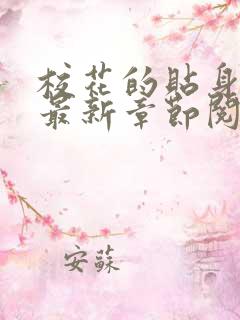 校花的贴身
最新章節閱
安蘇